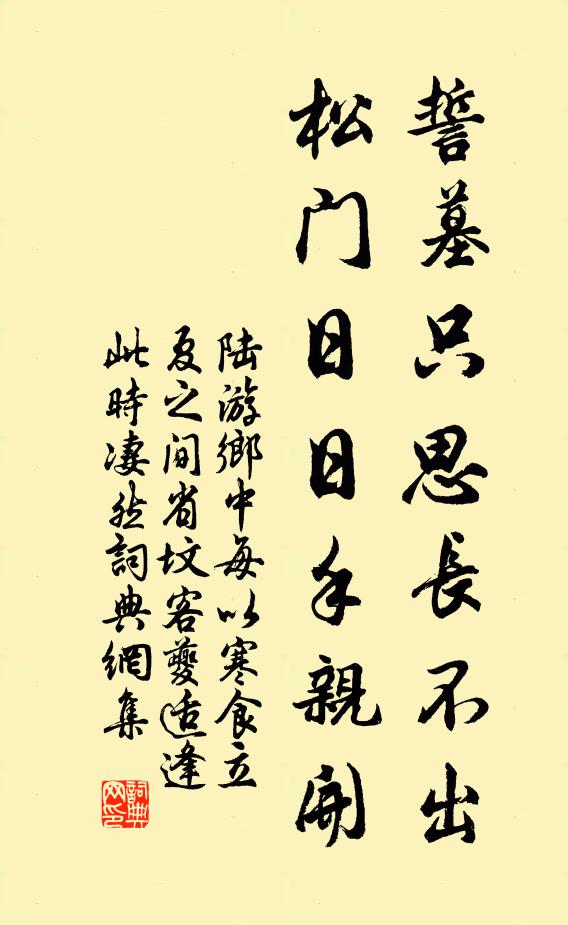 誓墓只思長不出
松門日日手親開
陆游鄉中每以寒食立
夏之间省坟客夔适逢
此時凄然詞典網集
詞典
网印